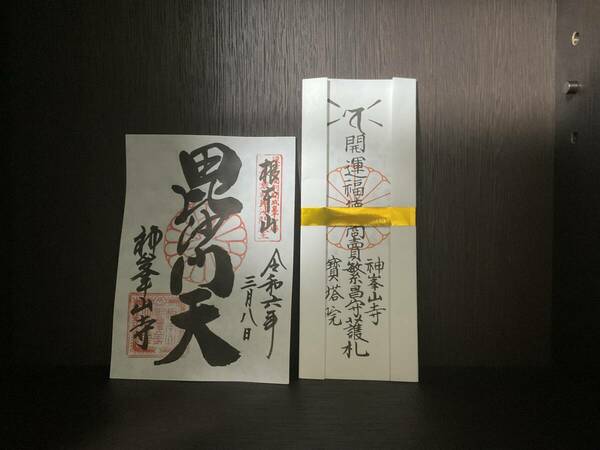 根本山
毘沙門天
令和六年
三月八日
神峯山寺
開運福徳商賣繁昌守護札
神峯山寺
寳塔院